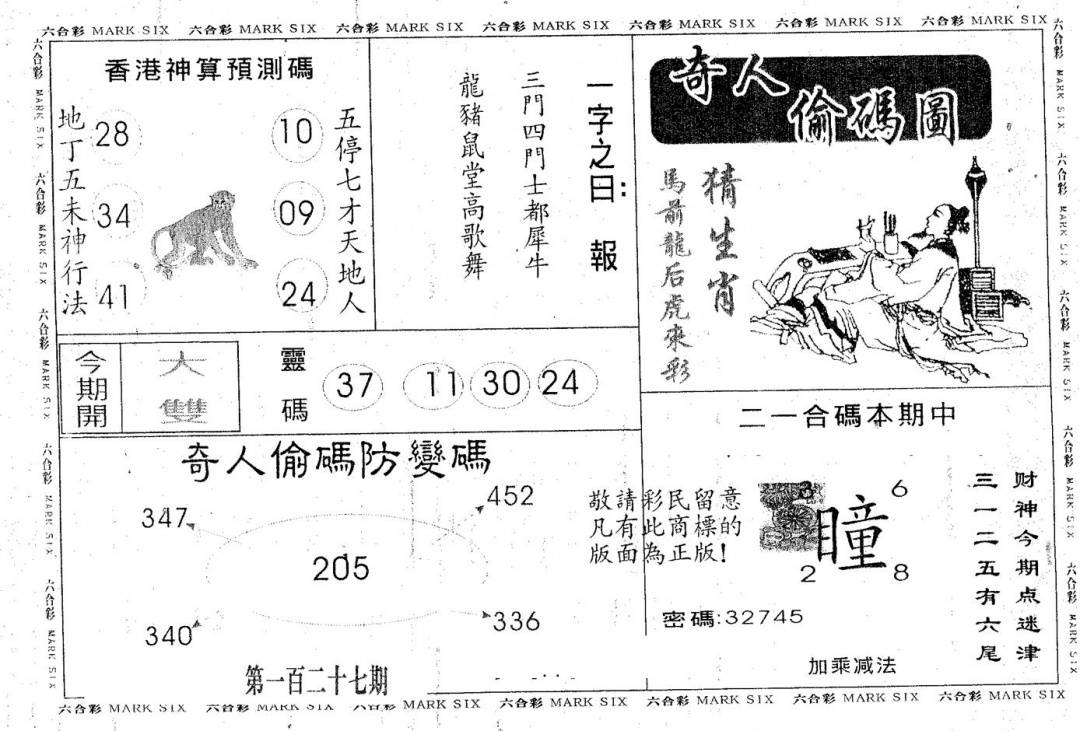 六合彩 MARK SIX 六合彩 MARK SIX 六合彩 MARK SIX 六合彩 MARK SIX 六合彩 MARK SIX 六合彩 MARK SIX 六合彩 MARK SIX
六合彩 MARK SIX 六合彩 MARK SIX 六合彩 MARK SIX 六合彩 MARK SIX 六合彩 MARK SIX
香港神算預測碼
地丁五未神行法
28
34
41
10
09
24
五停七才天地人
一字之曰: 報
三門四門士都犀牛
龍豬鼠堂高歌舞
奇人
偷碼圖
猜生肖
馬前龍后虎來彩
今期開
大
雙
靈碼
37 11 30 24
二一合碼本期中
奇人偷碼防變碼
347
452
205
340
336
第一百二十七期
敬請彩民留意
凡有此商標的
版面為正版!
3
6
瞳
2
8
密碼:32745
加乘减法
财神今期点迷津
三一二五有六尾
六合彩 MARK SIX 六合彩 MARK SIX 六合彩 MARK SIX 六合彩 MARK SIX 六合彩 MARK SIX
六合彩 MARK SIX 六合彩 MARK SIX 六合彩 MARK SIX 六合彩 MARK SIX 六合彩 MARK SIX 六合彩 MARK SIX 六合彩 MARK SIX